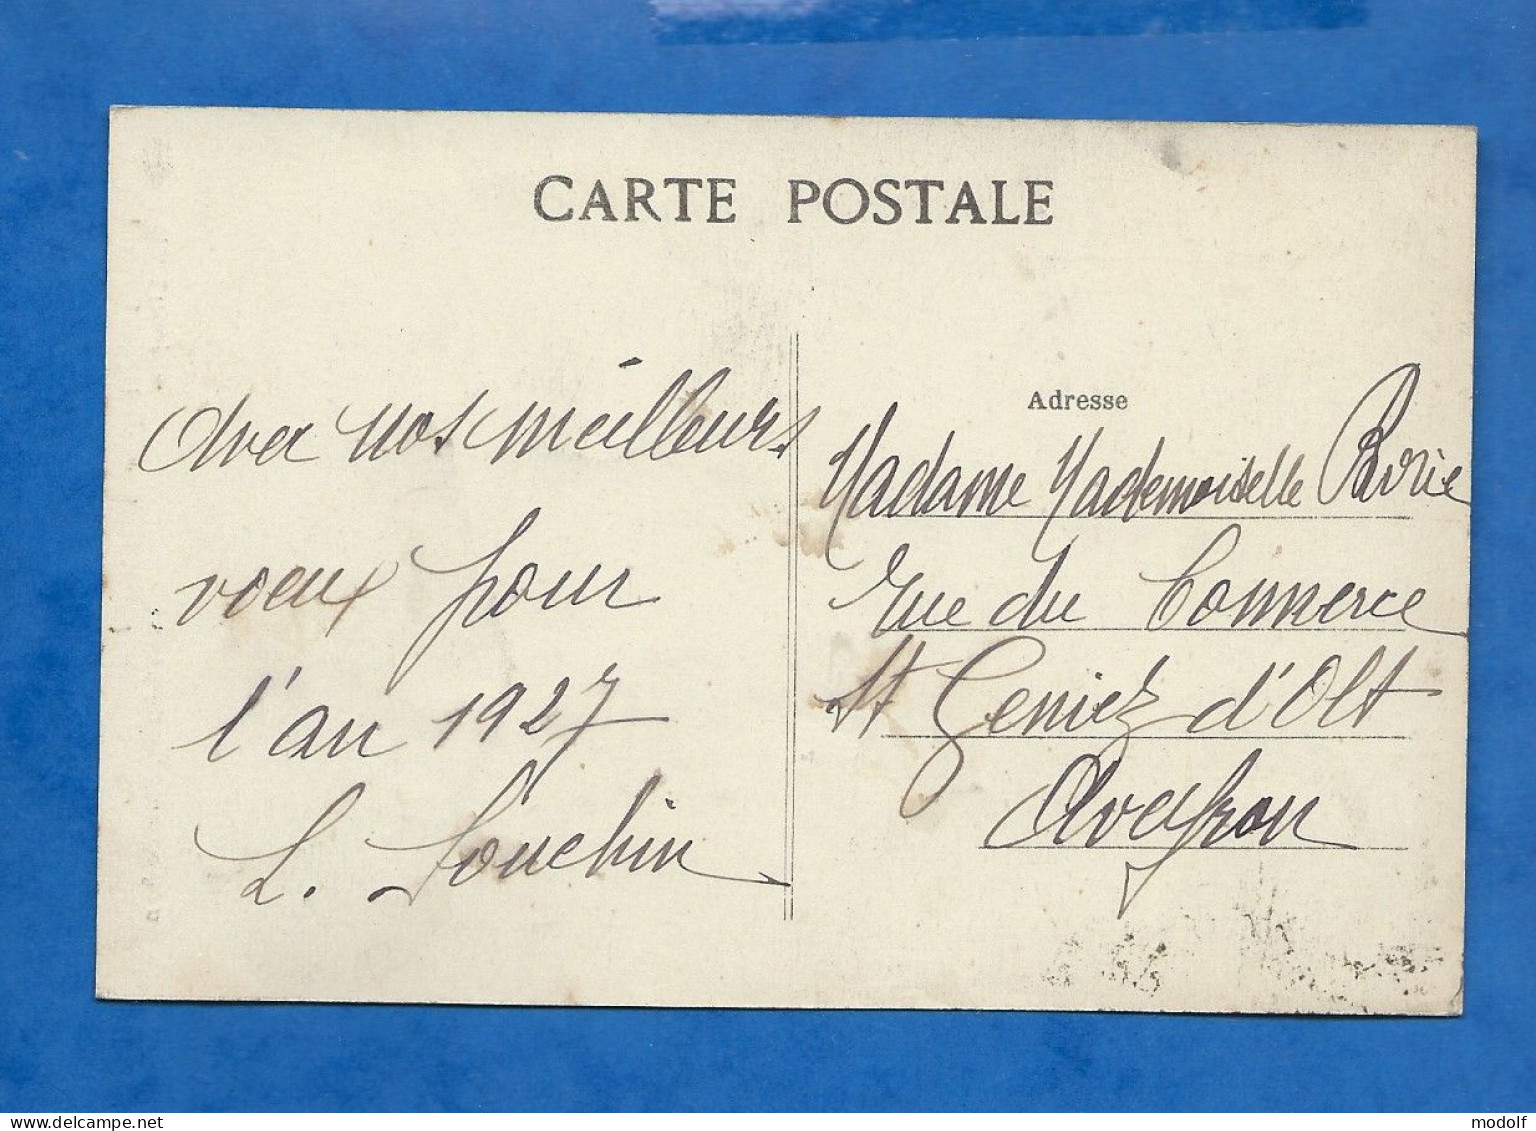 CARTE POSTALE
Avec nos meilleurs
voeux pour
l'an 1927
L. Souchin
Adresse
Madame Mademoiselle
rue du Commerce
St Geniez d'Olt
Aveyron
delcampe.net
modolf